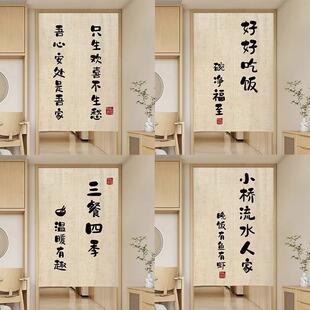 只生欢喜不生愁
吾心安处是吾家
好好吃饭
碗净福至
三餐四季
温暖有趣
小桥流水人家
晚饭有鱼有虾